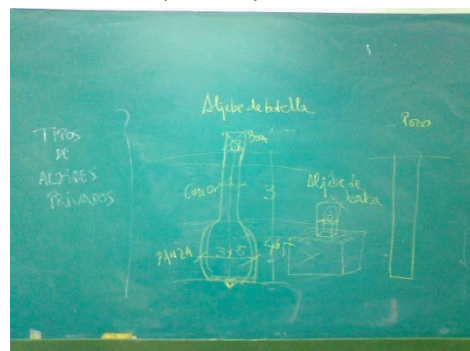 TIPOS
DE
ALJIBES
PRIVADOS
Aljibe de botella
Boca
3
PANZA
Aljibe de
Pozo